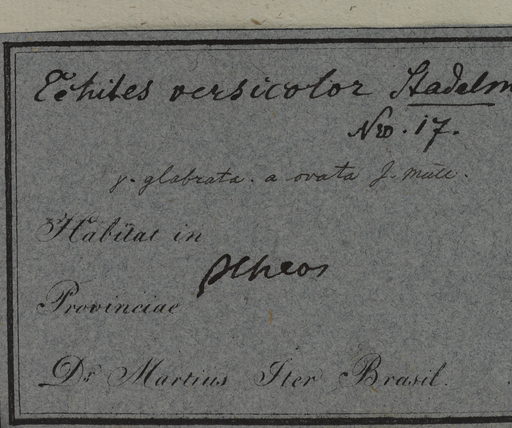 Echites versicolor Stadelm
Nro. 17.
γ. glabrata. a ovata J. Müll.
Habitat in
Ilheos
Provinciae
Dr. Martius Iter Brasil.